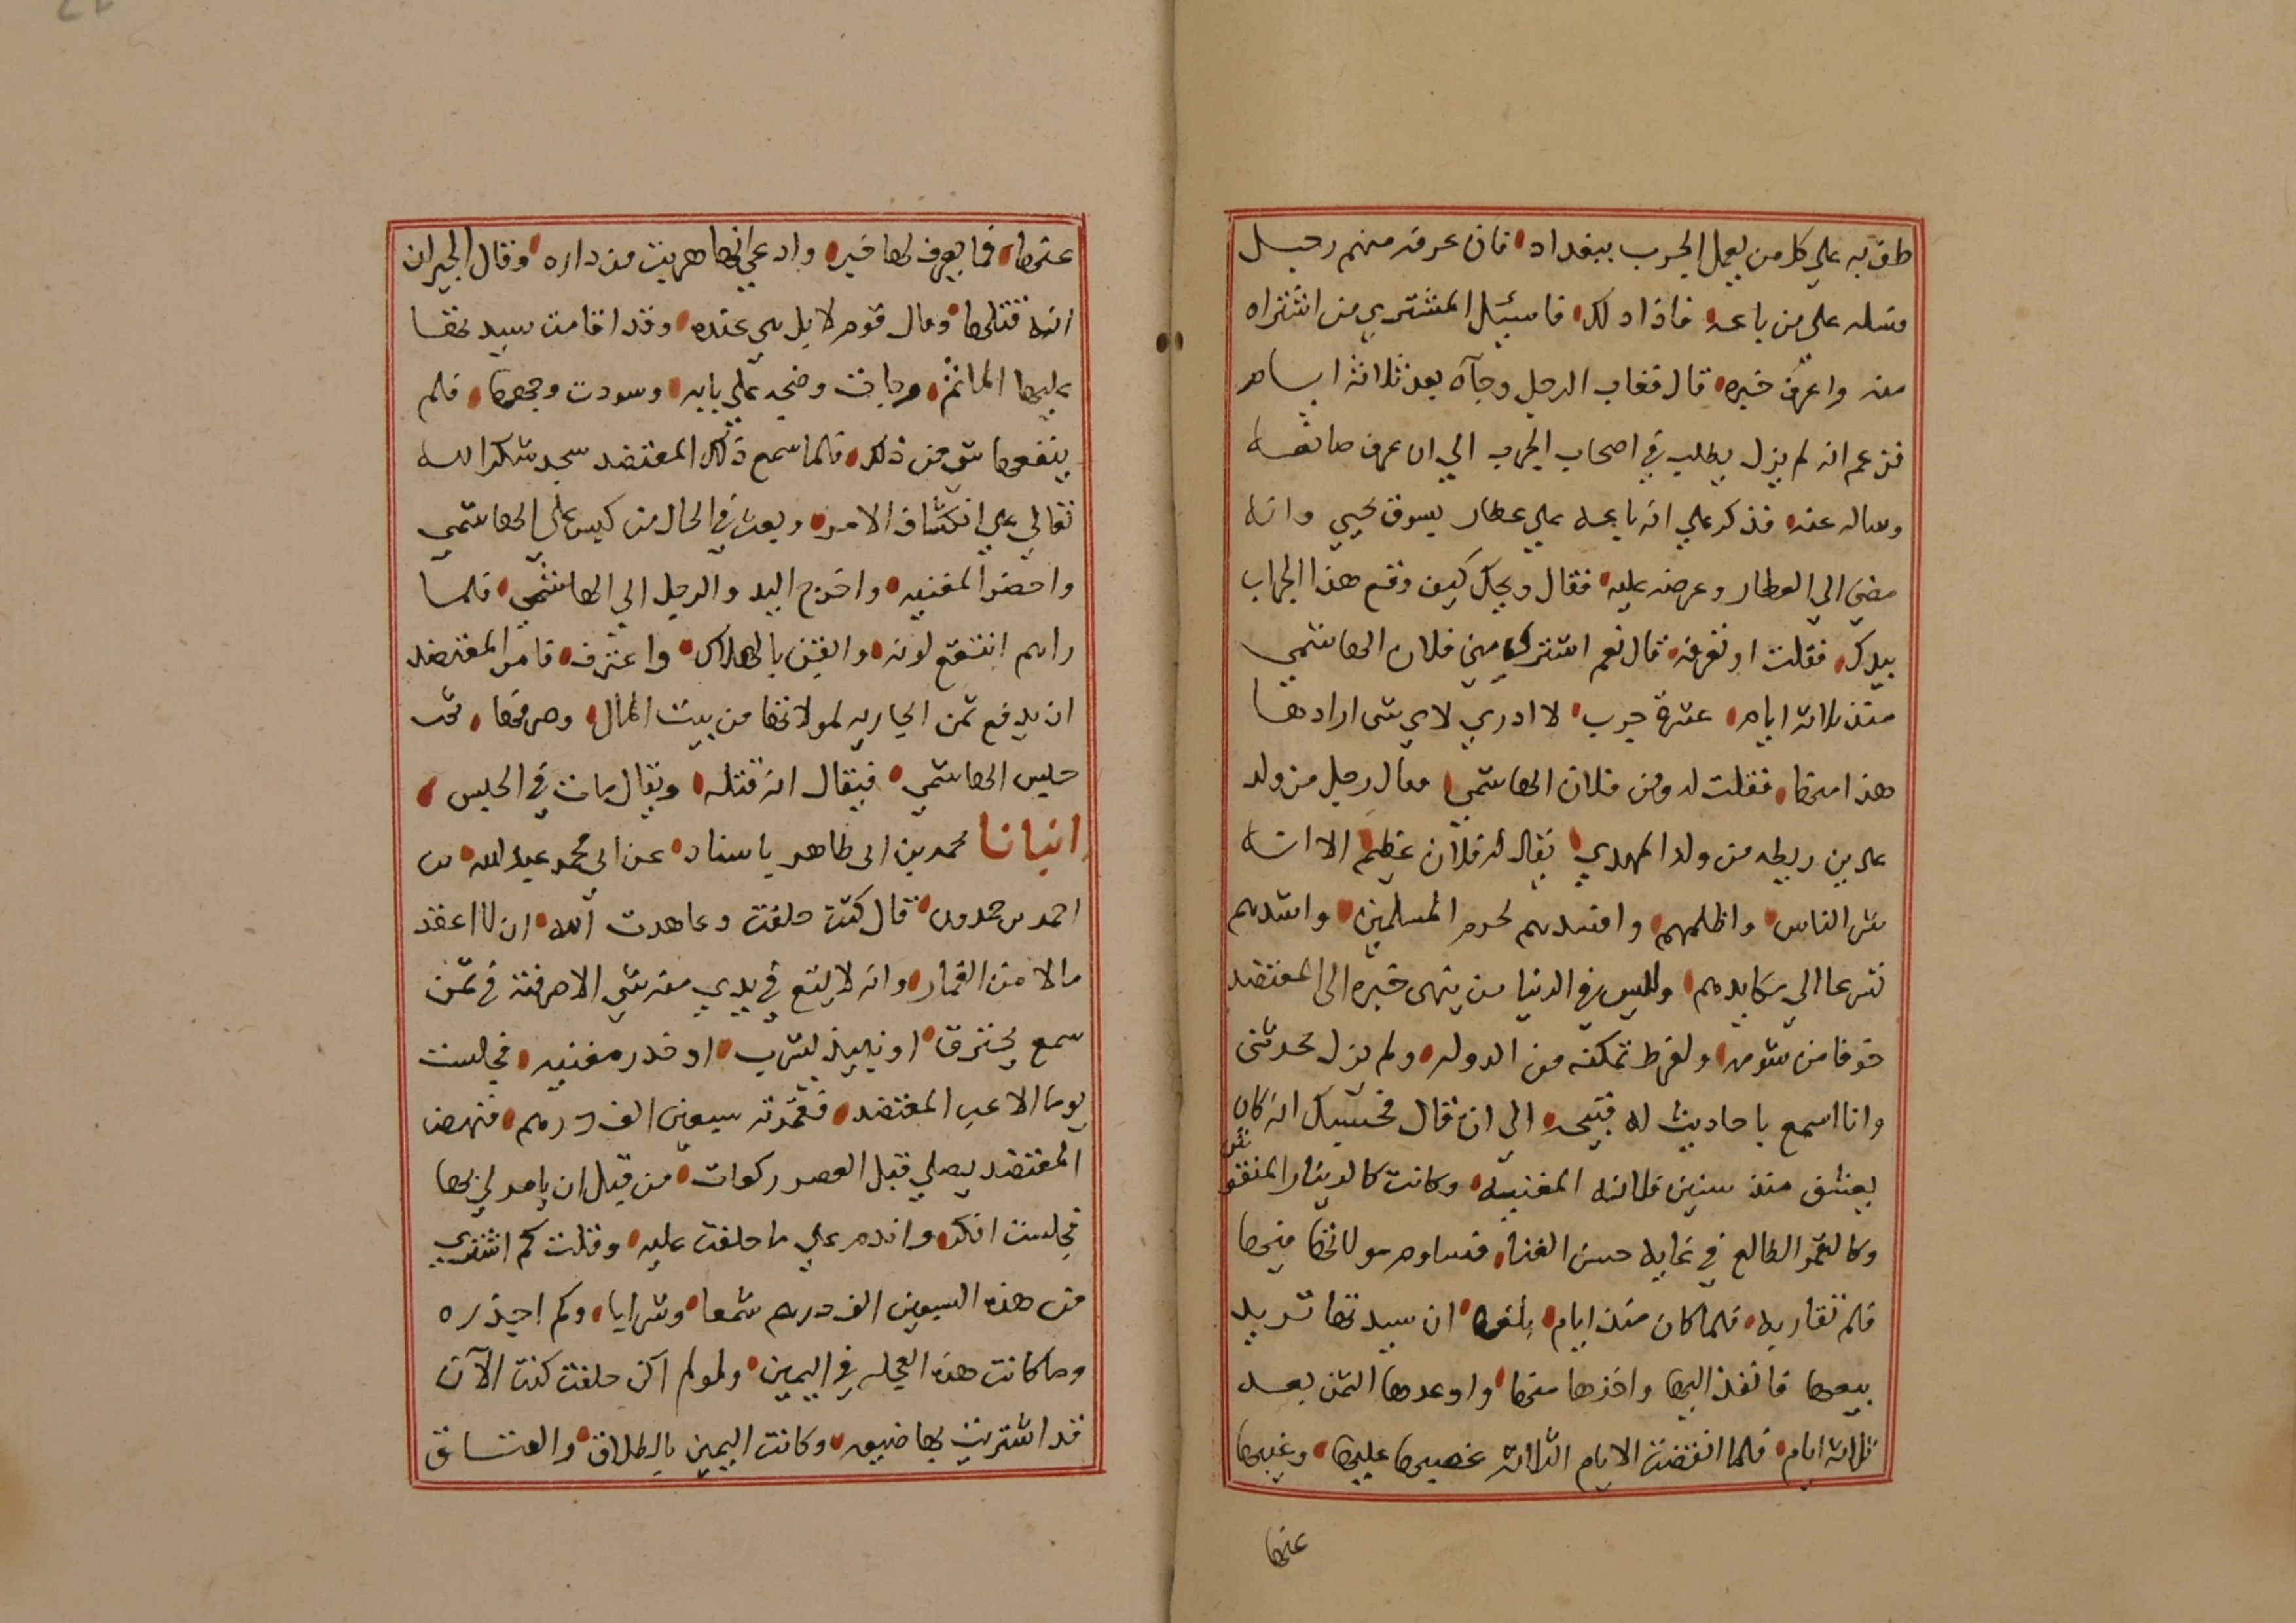 طف به علي كل من يعمل الجرب ببغداد، فان عرفه منهم رجل
فسله علي من باعه، فاذا دلك، فاسئل المشتري من اشتراه
منه واعرف خبره، قال فغاب الرجل وجآه بعد ثلاثة ايام
فزعم انه لم يزل يطلب في اصحاب الجرب الي ان عرف صانعه
وساله عنه فذكر علي انه باعه علي عطار بسوق يحيي وانه
مضي الي العطار وعرضه عليه، فقال ويحك كيف وقع هذا الجراب
بيدك، فقلت او تعرفه، قال نعم اشتري مني فلان الهاشمي
منذ ثلاثة ايام، عشرة جرب، لا ادري لاي شي ارادها
هذا منها، فقلت له ومن فلان الهاشمي، فقال رجل من ولد
علي بن ريطه من ولد المهدي، يقال له فلان عظيم، الا انه
شر الناس، واظلمهم، وافسدهم لحرم المسلمين، واشدهم
تشرعا الي مكايدهم، وليس في الدنيا من ينهي خبره الي المعتضد
خوفا من شومه، ولفرط تمكنه من الدوله، ولم يزل يحدثني
وانا اسمع باحاديث له قبيحه، الي ان قال فحسبك انه كان
يعشق منذ سنين فلانه المغنيه، وكانت كالدينار المنقو
ش
وكالقمر الطالع في غايه حسن الغناء، فساوم مولاتها فيها
فلم تقاربه، فلما كان منذ ايام، بلغه، ان سيدتها تريد
بيعها فانفذ اليها واخذها منها، واوعدها الثمن بعد
ثلاثة ايام، فلما انقضت الايام الثلاثه غصبها عليها، وغيبها
عنها
عنها، فما يعرف لها خبر، وادعي انها هربت من داره، وقال الجيران
انه قتلها، وقال قوم لا بل هي عنده، وقد اقامت سيدتها
عليها المأتم، وجات وضجت علي بابه، وسودت وجهها، فلم
ينفعها شي من ذلك، فلما سمع ذلك المعتضد سجد شكرا لله
تعالي علي انكشاف الامر، وبعث في الحال من كبس علي الهاشمي
واحضر المغنيه، واخرج اليد والرجل الي الهاشمي، فلما
راهم انتقع لونه، وايقن بالهلاك، واعترف، فامر المعتضد
ان يدفع ثمن الجاريه لمولاتها من بيت المال، وصرفها، ثم
حبس الهاشمي، فيقال انه قتله، ويقال مات في الحبس،
انبانا محمد بن ابي طاهر باسناد، عن ابي محمد عبد الله، بن
احمد بن حمدون، قال كنت حلفت وعاهدت الله، ان لا اعقد
مالا من القمار، وانه لا يقع في يدي منه شي الا صرفته في ثمن
سمع يحترق، او نبيذ يشرب، او جذر مغنيه، فجلست
يوما الاعب المعتضد، فقمرته سبعين الف درهم، فنهض
المعتضد يصلي قبل العصر ركعات، من قبل ان يامر لي بها
فجلست افكر واندم علي ما حلفت عليه، وقلت كم اشتري
من هذه السبعين الف درهم شمعا، وشرابا، وكم اجذره
وما كانت هذه العجله في اليمين، ولو لم اكن حلفت كنت الآن
قد اشتريت بها ضيعه، وكانت اليمين بالطلاق، والعتاق